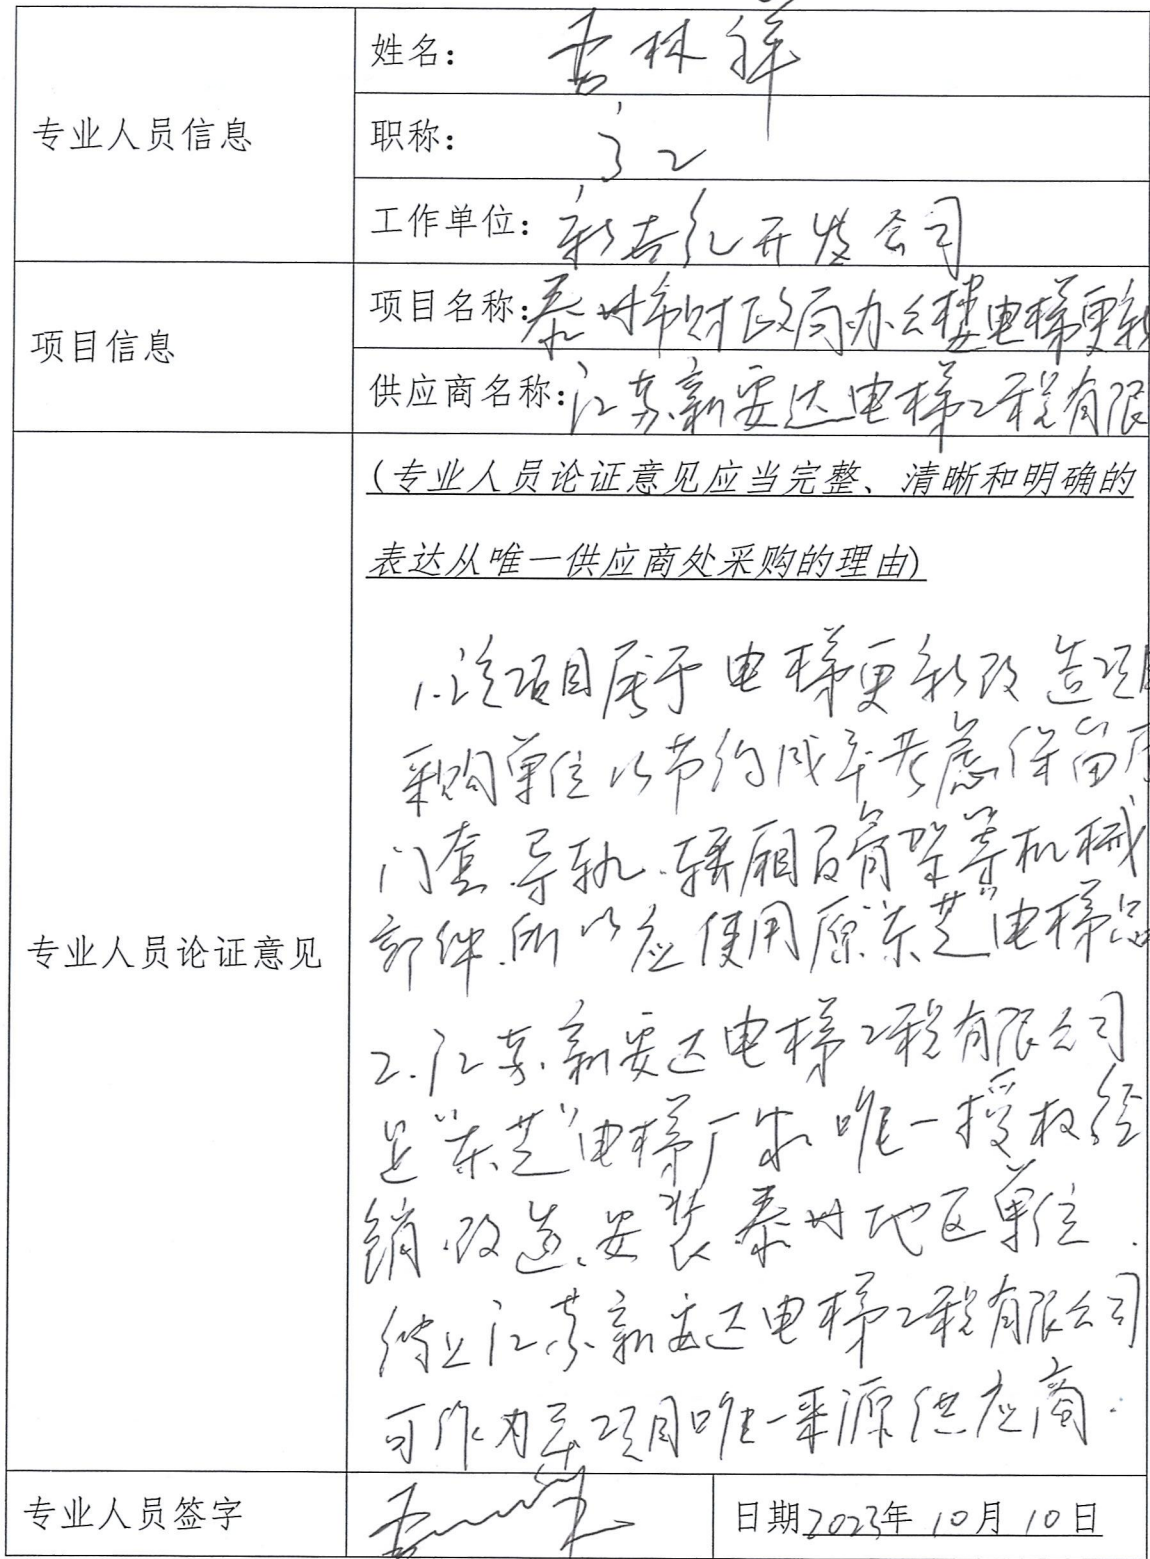 专业人员信息
姓名：李林祥
职称：高工
工作单位：新世纪开发公司
项目信息
项目名称：泰州市财政局办公楼电梯更新
供应商名称：江苏新安达电梯工程有限
专业人员论证意见
(专业人员论证意见应当完整、清晰和明确的
表达从唯一供应商处采购的理由)
1.该项目属于电梯更新改造项目
采购单位以节约成本考虑保留原
门套.导轨.轿厢骨架等机械
部件.所以应使用原"东芝"电梯品
2.江苏新安达电梯工程有限公司
是"东芝"电梯厂家唯一授权经
销.改造、安装泰州地区单位.
综上江苏新安达电梯工程有限公司
可作为本项目唯一来源供应商.
专业人员签字
日期2023年10月10日